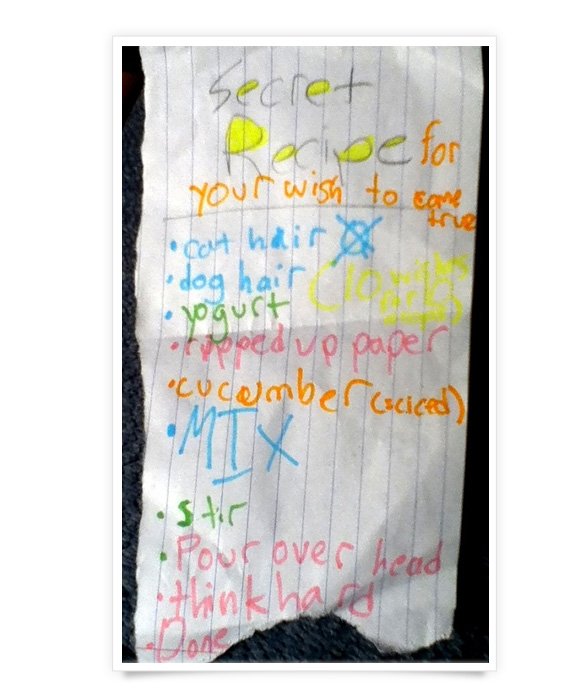 Secret
Recipe for
your wish to come
true
• cat hair
• dog hair (10 wishes
only)
• yogurt
• ripped up paper
• cucumber (sciced)
• MIX
• stir
• Pour over head
• think hard
• Done